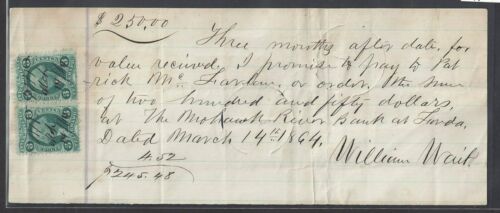 $250.00
Three months after date, for
value received, I promise to pay to Pat
rick Mc Farlan, or order, the sum
of two hundred and fifty dollars,
at The Mohawk River Bank at Fonda.
Dated March 14th 1864.
4.52
William Wait.
$245.48